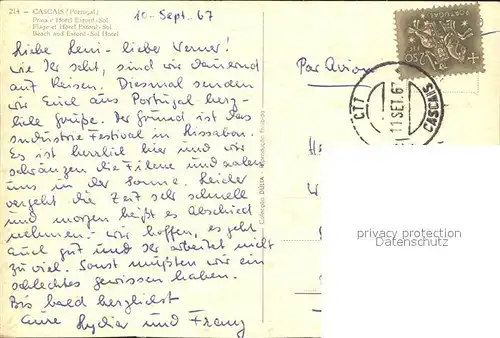 214 — CASCAIS (Portugal)
Praia e Hotel Estoril-Sol
Plage et Hotel Estoril-Sol
Beach and Estoril-Sol Hotel
10-Sept. 67
Liebe Leni - lieber Verner!
Wie Ihr seht, sind wir dauernd
auf Reisen. Diesmal senden
wir Euch aus Portugal herz-
liche Grüße. Der Grund ist das
Industrie Festival in Lissabon.
Es ist herrlich hier und wir
schwänzen die Filme und aalen
uns in der Sonne. Leider
vergeht die Zeit sehr schnell
und morgen heißt es Abschied
nehmen. - Wir hoffen, es geht
Euch gut und Ihr arbeitet nicht
zu viel. Sonst müßten wir ein
schlechtes Gewissen haben.
Bis bald herzlichst
Eure Lydia und Franz
Colecção DÚLIA
Par Avion
PORTUGAL
CTT
11 SET. 67
CASCAIS
Privacy protection
Datenschutz